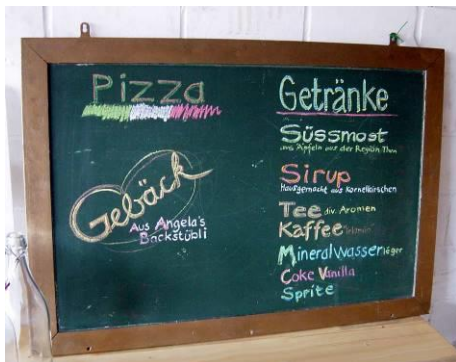 Pizza
Gebäck
Aus Angela's
Backstübli
Getränke
Süssmost
aus Äpfeln aus der Region Thun
Sirup
Hausgemacht aus Kornelkirschen
Tee div. Aromen
Kaffee
Mineralwasser léger
Coke Vanilla
Sprite